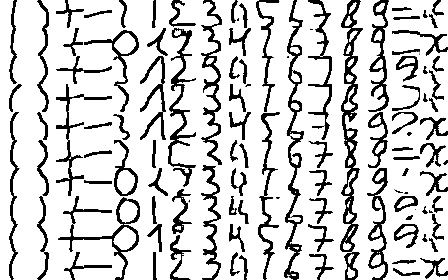 ( ) + - 1 2 3 4 5 6 7 8 9 = x
( ) + - 0 1 2 3 4 5 6 7 8 9 = x
( ) + - 1 2 3 4 5 6 7 8 9 x
( ) + - 1 2 3 4 5 6 7 8 9 x
( ) + - 1 2 3 4 5 6 7 8 9 x
( ) + - 1 2 3 4 5 6 7 8 9 = x
( ) + - 0 1 2 3 4 5 6 7 8 9 x
( ) + - 0 1 2 3 4 5 6 7 8 9 x
( ) + - 0 1 2 3 4 5 6 7 8 9 x
( ) + - 1 2 3 4 5 6 7 8 9 = x